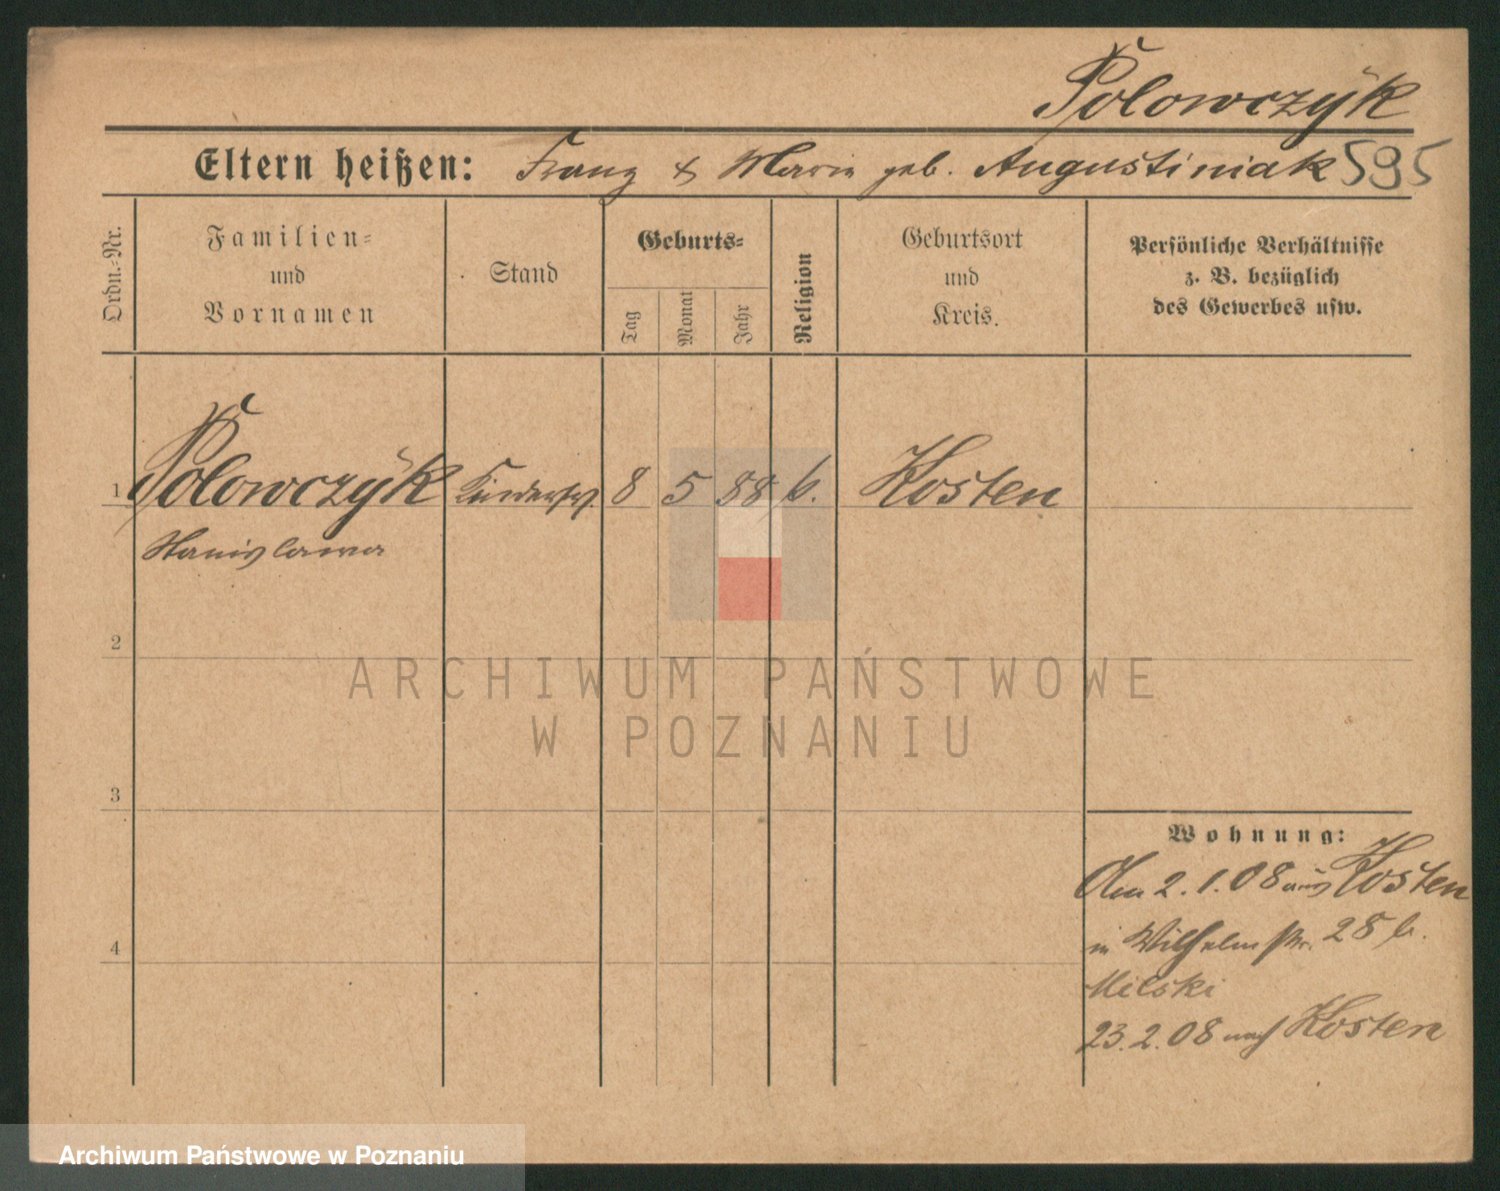 Polowczyk
Eltern heißen: Franz & Marie geb. Augustiniak 595
Ordn.-Nr.
Familien-
und
Vornamen
Stand
Geburts-
Tag
Monat
Jahr
Religion
Geburtsort
und
Kreis.
Persönliche Verhältnisse
z. B. bezüglich
des Gewerbes usw.
1 Polowczyk 8 5 88 Kosten
Stanislawa
2
3
4
Wohnung:
Am 2.1.08 aus Kosten
in Wilhelmstr. 28 b.
Milski
23.2.08 nach Kosten
ARCHIWUM PAŃSTWOWE
W POZNANIU
Archiwum Państwowe w Poznaniu